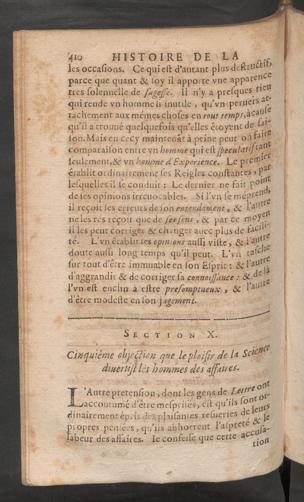 410 HISTOIRE DE LA
les occasions. Ce qui est d'autant plus destructif,
parce que quant & soy il apporte vne apparence
tres solennelle de sagesse. Il n'y a presques rien
qui rende vn homme si inutile, qu'vn peruers at-
tachement aux mêmes choses en tout temps, à cause
qu'il a trouué quelquefois qu'elles étoyent de sai-
son. Mais en cecy maintenāt à peine peut on faire
comparaison entre vn homme qui est speculatif tant
seulement, & vn homme d'Experience. Le premier
établit ordinairement ses Reigles constantes, par
lesquelles il se conduit: Le dernier ne fait point
de ses opinions irreuocables. Si l'vn se méprend,
il reçoit les erreurs de son entendement, & l'autre
ne les reçoit que de ses sens, & par ce moyen
il les peut corrigér & changer auec plus de facili-
té. L'vn établit ses opinions aussi viste, & l'autre
doute aussi long temps qu'il peut. L'vn tasche
sur tout d'être immuable en son Esprit: & l'autre
d'aggrandir & de corriger sa connoissance: & de là
l'vn est enclin à estre presomptueux, & l'autre
d'être modeste en son jugement.
SECTION X.
Cinquiéme objection que le plaisir de la Science
diuertist les hommes des affaires.
L'Autre pretension, dont les gens de Lettre ont
accoutumé d'être mesprisés, est qu'ils sont or-
dinairement épris des plaisantes resueries de leurs
propres pensées, qu'ils abhorrent l'aspreté & le
labeur des affaires. Ie confesse que cette accusa-
tion